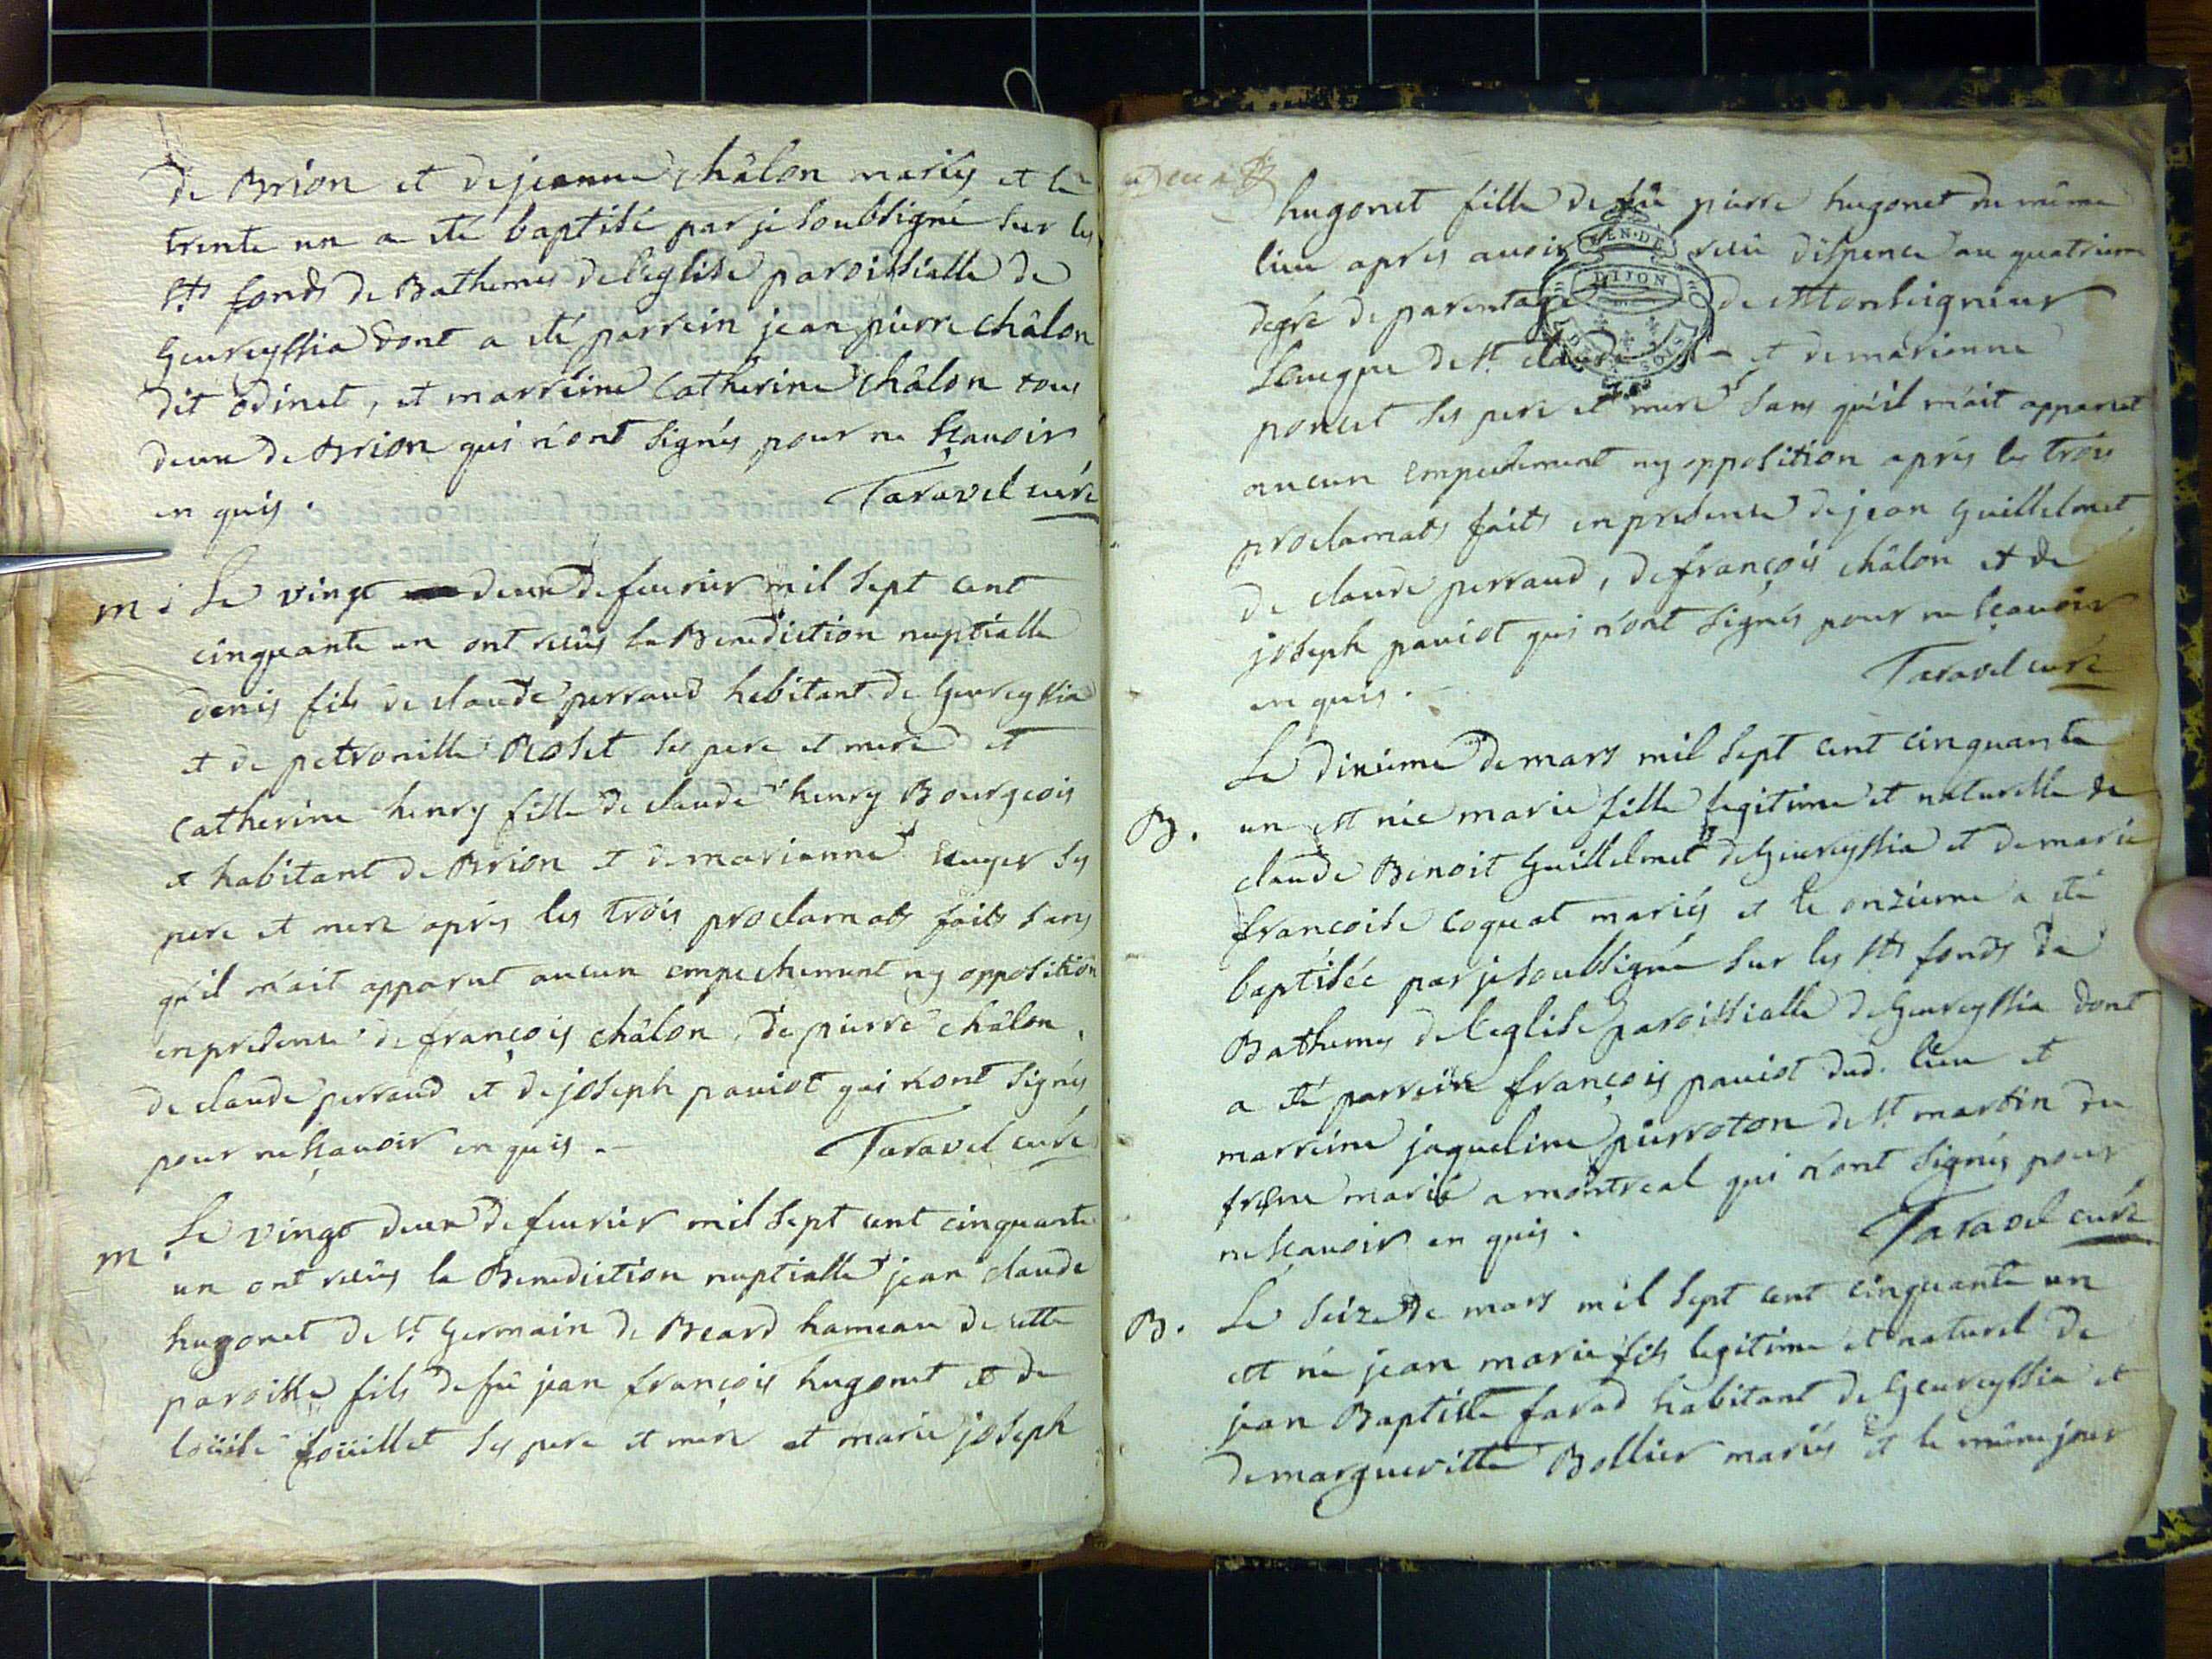 de Brion et de jeanne châlon mariés et le
trente un a eté baptisé par je soubsigné sur les
Sts fonds de Bathemes de l'eglise paroissialle de
Geureyssia dont a eté parrein jean pierre châlon
dit odinet, et marreine Catherine châlon tous
deux de Brion qui n'ont signés pour ne sçavoir
en quis. Taravel curé
m. Le vingt deux de feurier mil sept cent
cinquante un ont reçûs la Benediction nuptialle
denis fils de claude perraud habitant de Geureyssia
et de petronille Roset ses pere et mere et
Catherine henry fille de claude henry Bourgeois
et habitant de Brion et de marianne auger ses
pere et mere apres les trois proclamats faits sans
qu'il m'ait apparut aucun empechement ny opposition
en presence de françois châlon, de pierre châlon,
de claude perraud et de joseph pauiot qui n'ont signés
pour ne sçavoir en quis. Taravel curé
m Le vingt deux de feurier mil sept cent cinquante
un ont reçûs la Benediction nuptialle jean claude
hugonet de St Germain de Beard hameau de cette
paroisse fils de fû jean françois hugonet et de
loüise foüillet ses pere et mere et marie joseph
hugonet fille de fû pierre hugonet du même
lieu apres auoir reçû dispence au quatrieme
degré de parentage de Monseigneur
Leveque de St claude et de marianne
poncet ses pere et mere sans qu'il m'ait apparut
aucun empechement ny opposition aprés les trois
proclamats faits en presence de jean Guillelmet
de claude perraud, de françois châlon et de
joseph pauiot qui n'ont signés pour ne sçavoir
en quis. Taravel curé
Le dixieme de mars mil sept cent cinquante
B. un est née marie fille legitime et naturelle de
claude Benoit Guillelmet de Geureyssia et de marie
francoise coquat mariés et le onzieme a eté
baptisée par je soubsigné sur les Sts fonds de
Bathemes de l'eglise paroissialle de Geureyssia dont
a eté parrein françois pauiot dud. lieu et
marreine jaqueline pierroton de St martin du
frene marié a montreal qui n'ont signés pour
ne sçavoir en quis. Taravel curé
B. Le seize de mars mil sept cent cinquante un
est né jean marie fils legitime et naturel de
jean Baptiste farad habitant de Geureyssia et
de margueritte Bollier mariés et le même jour
DIJON